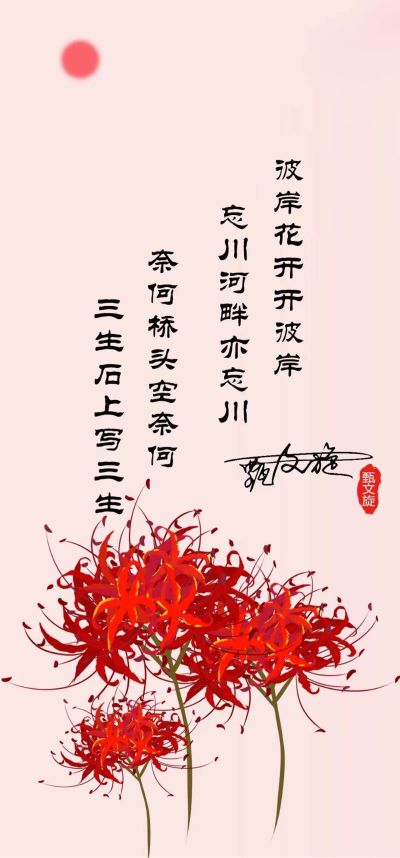 彼岸花开开彼岸
忘川河畔亦忘川
奈何桥头空奈何
三生石上写三生
甄文旋
甄文旋